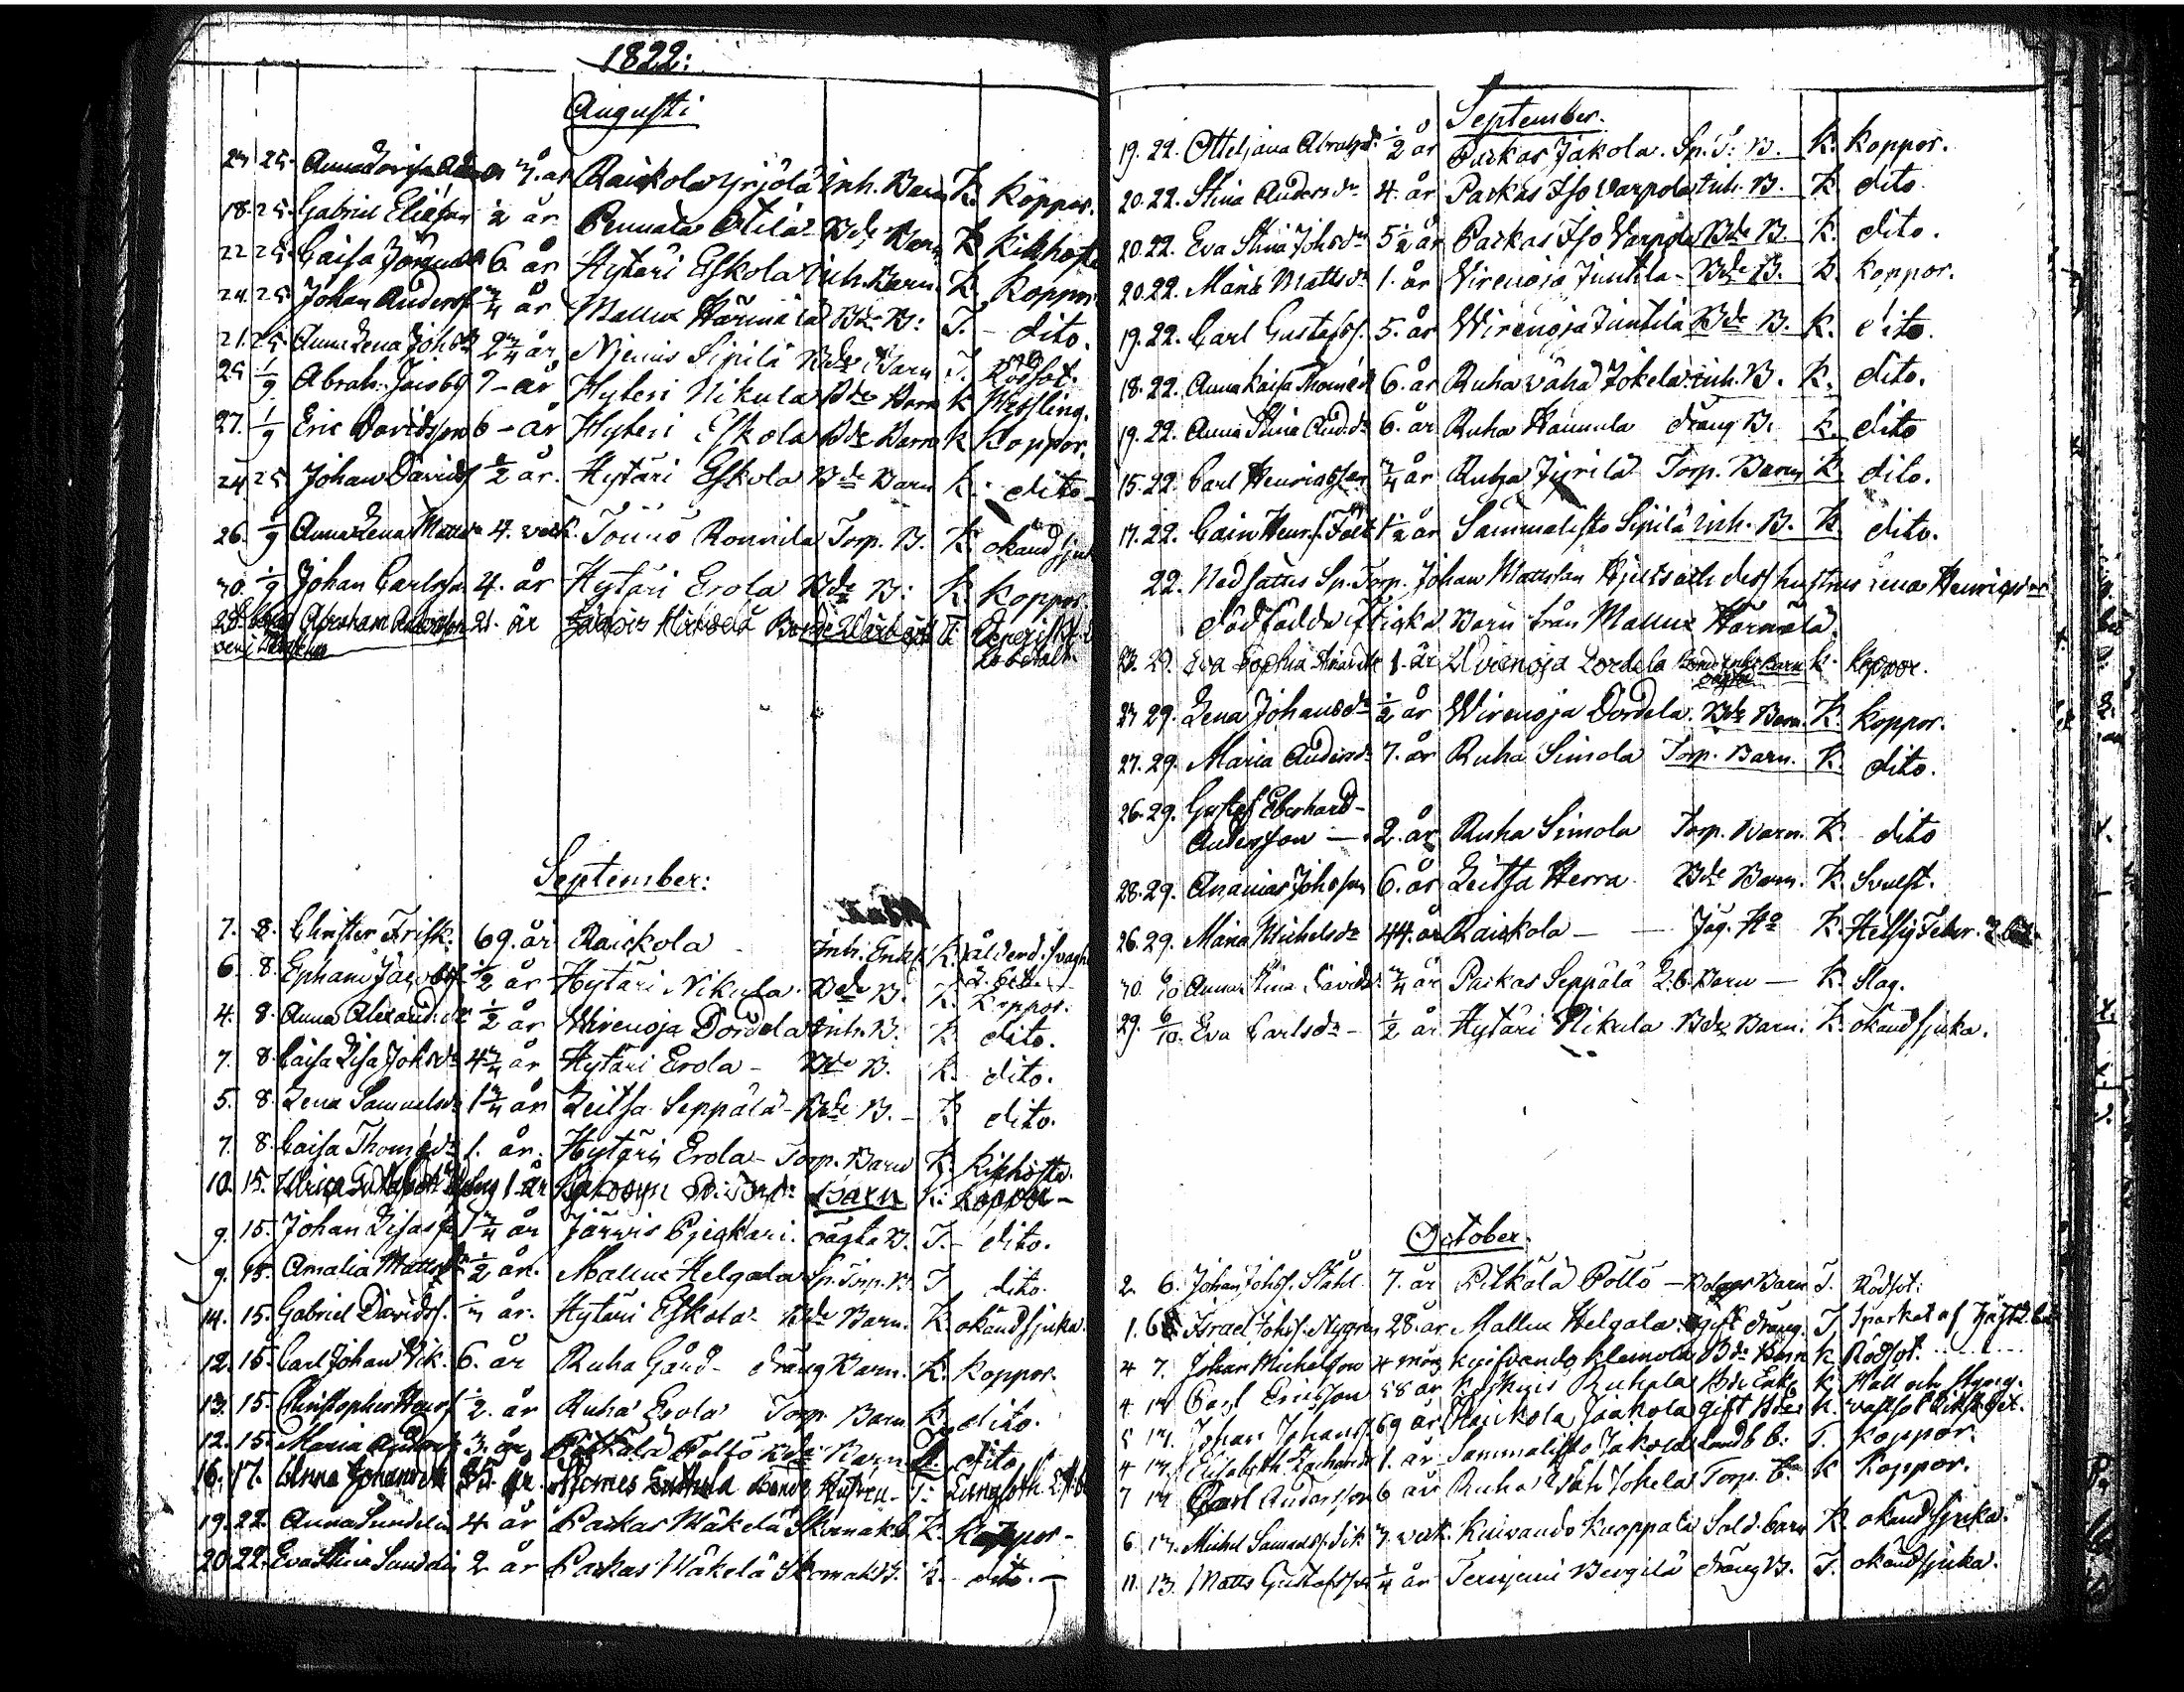 1822:
Augusti
25. Anna Lovisa år Raickola Yrjölä Inh. Barn K. Koppor.
18. 25. Gabriel Eliasson ½ år Pennala Åtila Bde Barn K Kikhosta
22 25. Caisa 6. år Hytäri Eskola Inh. Barn K Koppor
24. 25 Johan Anderss ¾ år Mallux Härmälä Bde B: T. dito.
21. 25 Anna Lena Johsdr 2¾ år Njemis Sipilä Bde Barn T. Rödsot.
25 1/9 Abrah. Jacobss 7 - år Hyteri Nikula Bde Barn K Messling.
27. 1/9 Eric Davidsson 6 - år Hyteri Eskola Bde Barn K Koppor.
24 25 Johan Davids ½ år. Hytäri Eskola Bde Barn K. dito
26. 1/9 Anna Lena 4. veck. Torp. B. K okänd sjuk
30. 1/9 Johan Carlsson 4. år Hytäri Erola Bde B: K Koppor
Abraham 21. år Järvis T:
September:
7. 8. Christer Frisk. 69. år Raickola Inh. Enkl. K. ålderd. svagh
6. 8. Ephraim Jacobss ½ år Hytäri Nikula. Bde B. K. Koppor.
4. 8. Anna Alexand. dr ½ år Wirenoja Dordela Inh. B. K dito.
7. 8 Caisa Lisa Johsdr 4¾ år Hytäri Erola - Bde B. K. dito.
5. 8 Lena Samuelsdr 1¾ år Leitsa Seppälä - Bde B. - K dito.
7. 8 Caisa Thomædr 1. år. Hytäri Erola - Torp. Barn K. Kikhosta.
10. 15. Ulrica 1 år Barn K: Koppor -
9. 15. Johan 1¾ år Järvis Pjeckari. oägta B. T. - dito.
9. 15. Amalia Mattsdr ½ år. Mallux Helgala Sp. Torp. B. T dito.
14. 15. Gabriel Davidss. år. Hytäri Eskola Bde Barn. K. okänd sjuka.
12. 15. Carl Johan Vik. 6. år Ruha Gård - dräng Barn. K. Koppor.
13. 15. Christopher Henrs ½. år Ruha Erola Torp. Barn K. dito.
12. 15. Maria 3. år Pilkälä Pollö Bde Barn dito
16. 17. Anna Johansdr 35. år Bonde Hustru - T: Lungsoth.
19. 22 Anna Sundelin 4. år Packas Mäkelä Skomak. B. K. Koppor -
20. 22. Eva Stina Sundelin 2 år Packas Mäkelä Skomak. B. K. dito. -
September.
19. 22. Otteljana Abrahsdr ½ år Packas Jakola. Sp. T. B. K. Koppor.
20. 22. Stina Andersdr 4. år Packas Iso Warpola Inh. B. K dito.
20. 22. Eva Stina Johsdr 5½ år Packas Iso Warpola Bde B. K. dito.
20. 22. Maria Mattsdr 1. år Wirenoja Juntila - Bde B. K. Koppor.
19. 22. Carl Gustafss. 5. år Wirenoja Juntila Bde B. K. dito.
18. 22. Anna Kaisa Thomædr 6. år Ruha wähä Jokela inh. B. K. dito.
19. 22. Anna Stina And.dr 6. år Ruha Hannula dräng B. K. dito
15. 22. Carl Henricsson ¾ år Ruha Jyrilä Torp. Barn K. dito.
17. 22. 1½ år Sammalisto Sipilä Inh. B. K. dito.
22. Nedsattes Sp. Torp. Johan Mattsson Hjelts och dess hustrus Lena Henricsdrs
dödfödda flicka Barn från Mallux Härmälä.
29. Eva Sophia 1. år Wirenoja Dordela Barn K. Koppor.
27 29. Lena Johansdr ½ år Wirenoja Dordela. Bde Barn. K. Koppor.
27. 29. Maria Andersdr 7. år Ruha Simola Torp. Barn. K. dito.
26. 29. Gustaf Eberhard -
Andersson - 2. år Ruha Simola Torp. Barn. K. dito
28. 29. Ananias Johsson 6. år Leitsa Herra Bde Barn. K. Svulst.
26. 29. Maria Michelsdr 44. år Raickola - Jäg. Ha K. Hetsig Feber.
30. 6/10 Anna Stina Davidsdr ¾ år Packas Seppälä Barn - K. Slag.
29. 6/10. Eva Carlsdr - ½ år Hytäri Nikula Bde Barn. K. okänd sjuka.
October.
2. 6. Johan Johss. Ståhl 7. år Pilkälä Pollö - Barn T. Rödsot:
1. 6 Israel Johss. Nygren 28. år Mallux Helgala. gift dräng. T Sparkat af
4 7. Johan Michelsson 4 mån Kuivando Klemola Bde Barn K. Rödsot.
4. 14 Carl Ericsson 58 år Bde Enkl K. Håll och styng.
5 13. Johan Johanss 69 år Raickola Jaakola gift K.
4 13. Elisabeth Zachariædr 1. år Sammalisto Jakola B: T. Koppor.
7 13 Carl Andersson 6 år Ruha wäh Jokela Torp. B. K Koppor.
6 13. Michel 3. veck. Kuivando Knoppala Sold. barn K. okänd sjuka.
11. 13. Matts Gustafsson ¼ år Terijemi Bergilä dräng B. T. okänd sjuka.